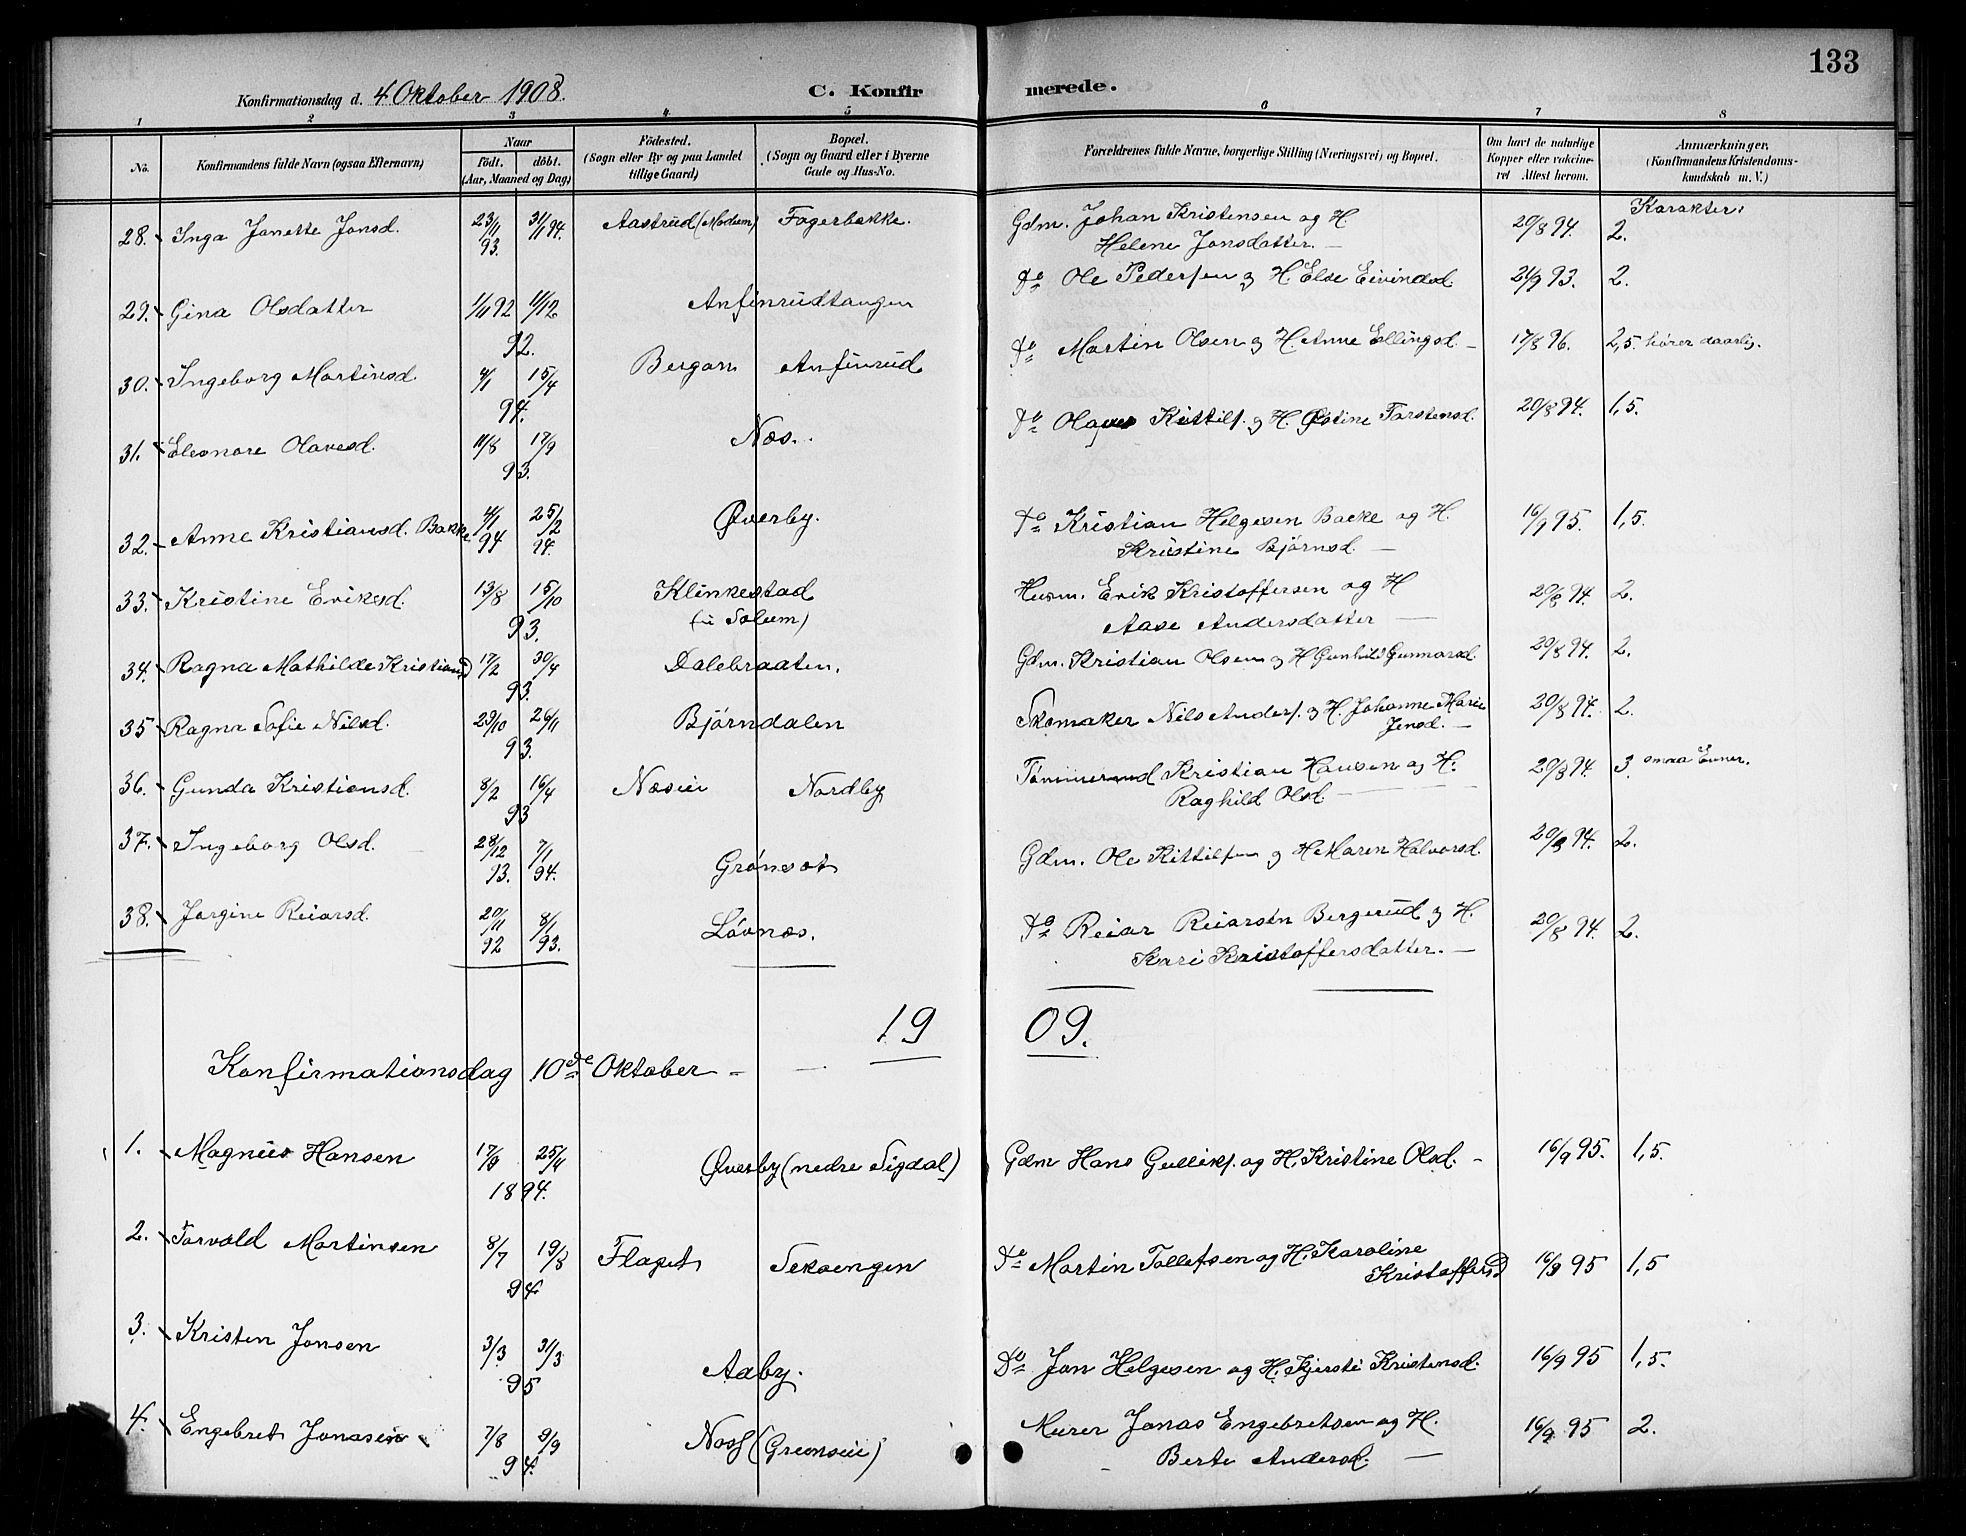 133
Konfirmationsdag d. 4 Oktober 1908. C. Konfirmerede.
1 2 3 4 5 6 7 8
No. Konfirmandens fulde Navn (ogsaa Efternavn) Naar født. døbt. (Aar, Maaned og Dag) Födested. (Sogn eller By og paa Landet tillige Gaard) Bopæl. (Sogn og Gaard eller i Byerne Gade og Hus-No. Forældrenes fulde Navne, borgerlige Stilling (Næringsvei) og Bopæl. Om havt de naturlige Kopper eller vakcineret Attest herom. Anmærkninger, (Konfirmandens Kristendomskundskab m. V.)
Karakter:
28. Inga Janette Jonsd. 23/11 93. 31/1 94. Aastrud (Modum) Fagerbakke. Gdm. Johan Kristensen og H. 20/8 94. 2.
Helene Jonsdatter.
29. Gina Olsdatter 1/11 92 11/12 92. Anfinrudtangen Do Ole Pedersen og H Else Eivindsd. 21/9 93. 2.
30. Ingeborg Martinsd. 4/1 15/4 94. Bergan Anfinrud Do Martin Olsen og H Anne Ellingsd. 17/8 96. 2,5. hører daarlig.
31. Eleonore Olavesd. 11/8 17/9 93. Næs. Do Olaves Kittils. og H. Østine Torstensd. 20/8 94. 1,5.
32. Anne Kristiansd. Bakke 4/1 94 25/2 94. Øverby. Do Kristian Helgesen Bakke og H. 16/9 95. 1,5.
Kristine Bjørnsd.
33. Kristine Eriksd. 13/8 15/10 93. Klinkestad Husm. Erik Kristoffersen og H 20/8 94. 2.
(u Solum) Aase Andersdatter
34. Ragna Mathilde Kristiansd 17/2 30/4 93. Dalebraaten. Gdm. Kristian Olsen og H Gunhild Gunnarsd. 20/8 94. 2.
35 Ragna Sofie Nilsd. 29/10 26/11 93. Bjørndalen Skomaker Nils Anders. og H. Johanne Marie 20/8 94. 2.
Jensd.
36. Gunda Kristiansd. 8/2 16/4 93 Næseie Nordby Tømmermd Kristian Hansen og H. 20/8 94. 3. smaa Evner.
Raghild Olsd
37. Ingeborg Olsd. 28/12 93. 7/1 94. Grønsæt Gdm. Ole Kittilsen og H Maren Halvorsd. 20/8 94. 2.
38. Jorgine Reiarsd. 20/11 92 8/1 93. Løvnæs. Do Reiar Reiarsen Bergerud og H. 20/8 94. 2.
Kari Kristoffersdatter.
1909.
Konfirmationsdag 10de Oktober
1. Magnus Hansen 17/3 25/4 1894. Øverby (nedre Sigdal) Gdm Hans Gulliks. og H. Kristine Olsd. 16/9 95. 1,5.
2. Torvald Martinsen 8/7 19/8 94. Flaget Sekaengen Do Martin Tollefsen og H. Karoline 16/9 95 1,5
Kristoffersd
3. Kristen Jonsen 3/3 31/3 95 Aaby. Do Jon Helgesen og H. Kjersti Kristensd. 16/9 95 1,5.
4. Engebret Jonasen 7/8 9/9 94. Næss (Grønseie) Murer Jonas Engebretsen og H. 16/9 95 2.
Berte Andersd.